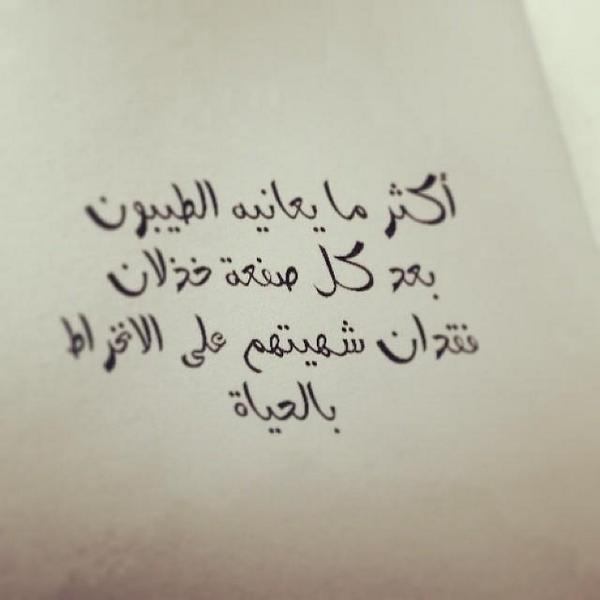 أكثر ما يعانيه الطيبون
بعد كل صفعة خذلان
فقدان شهيتهم على الانخراط
بالحياة